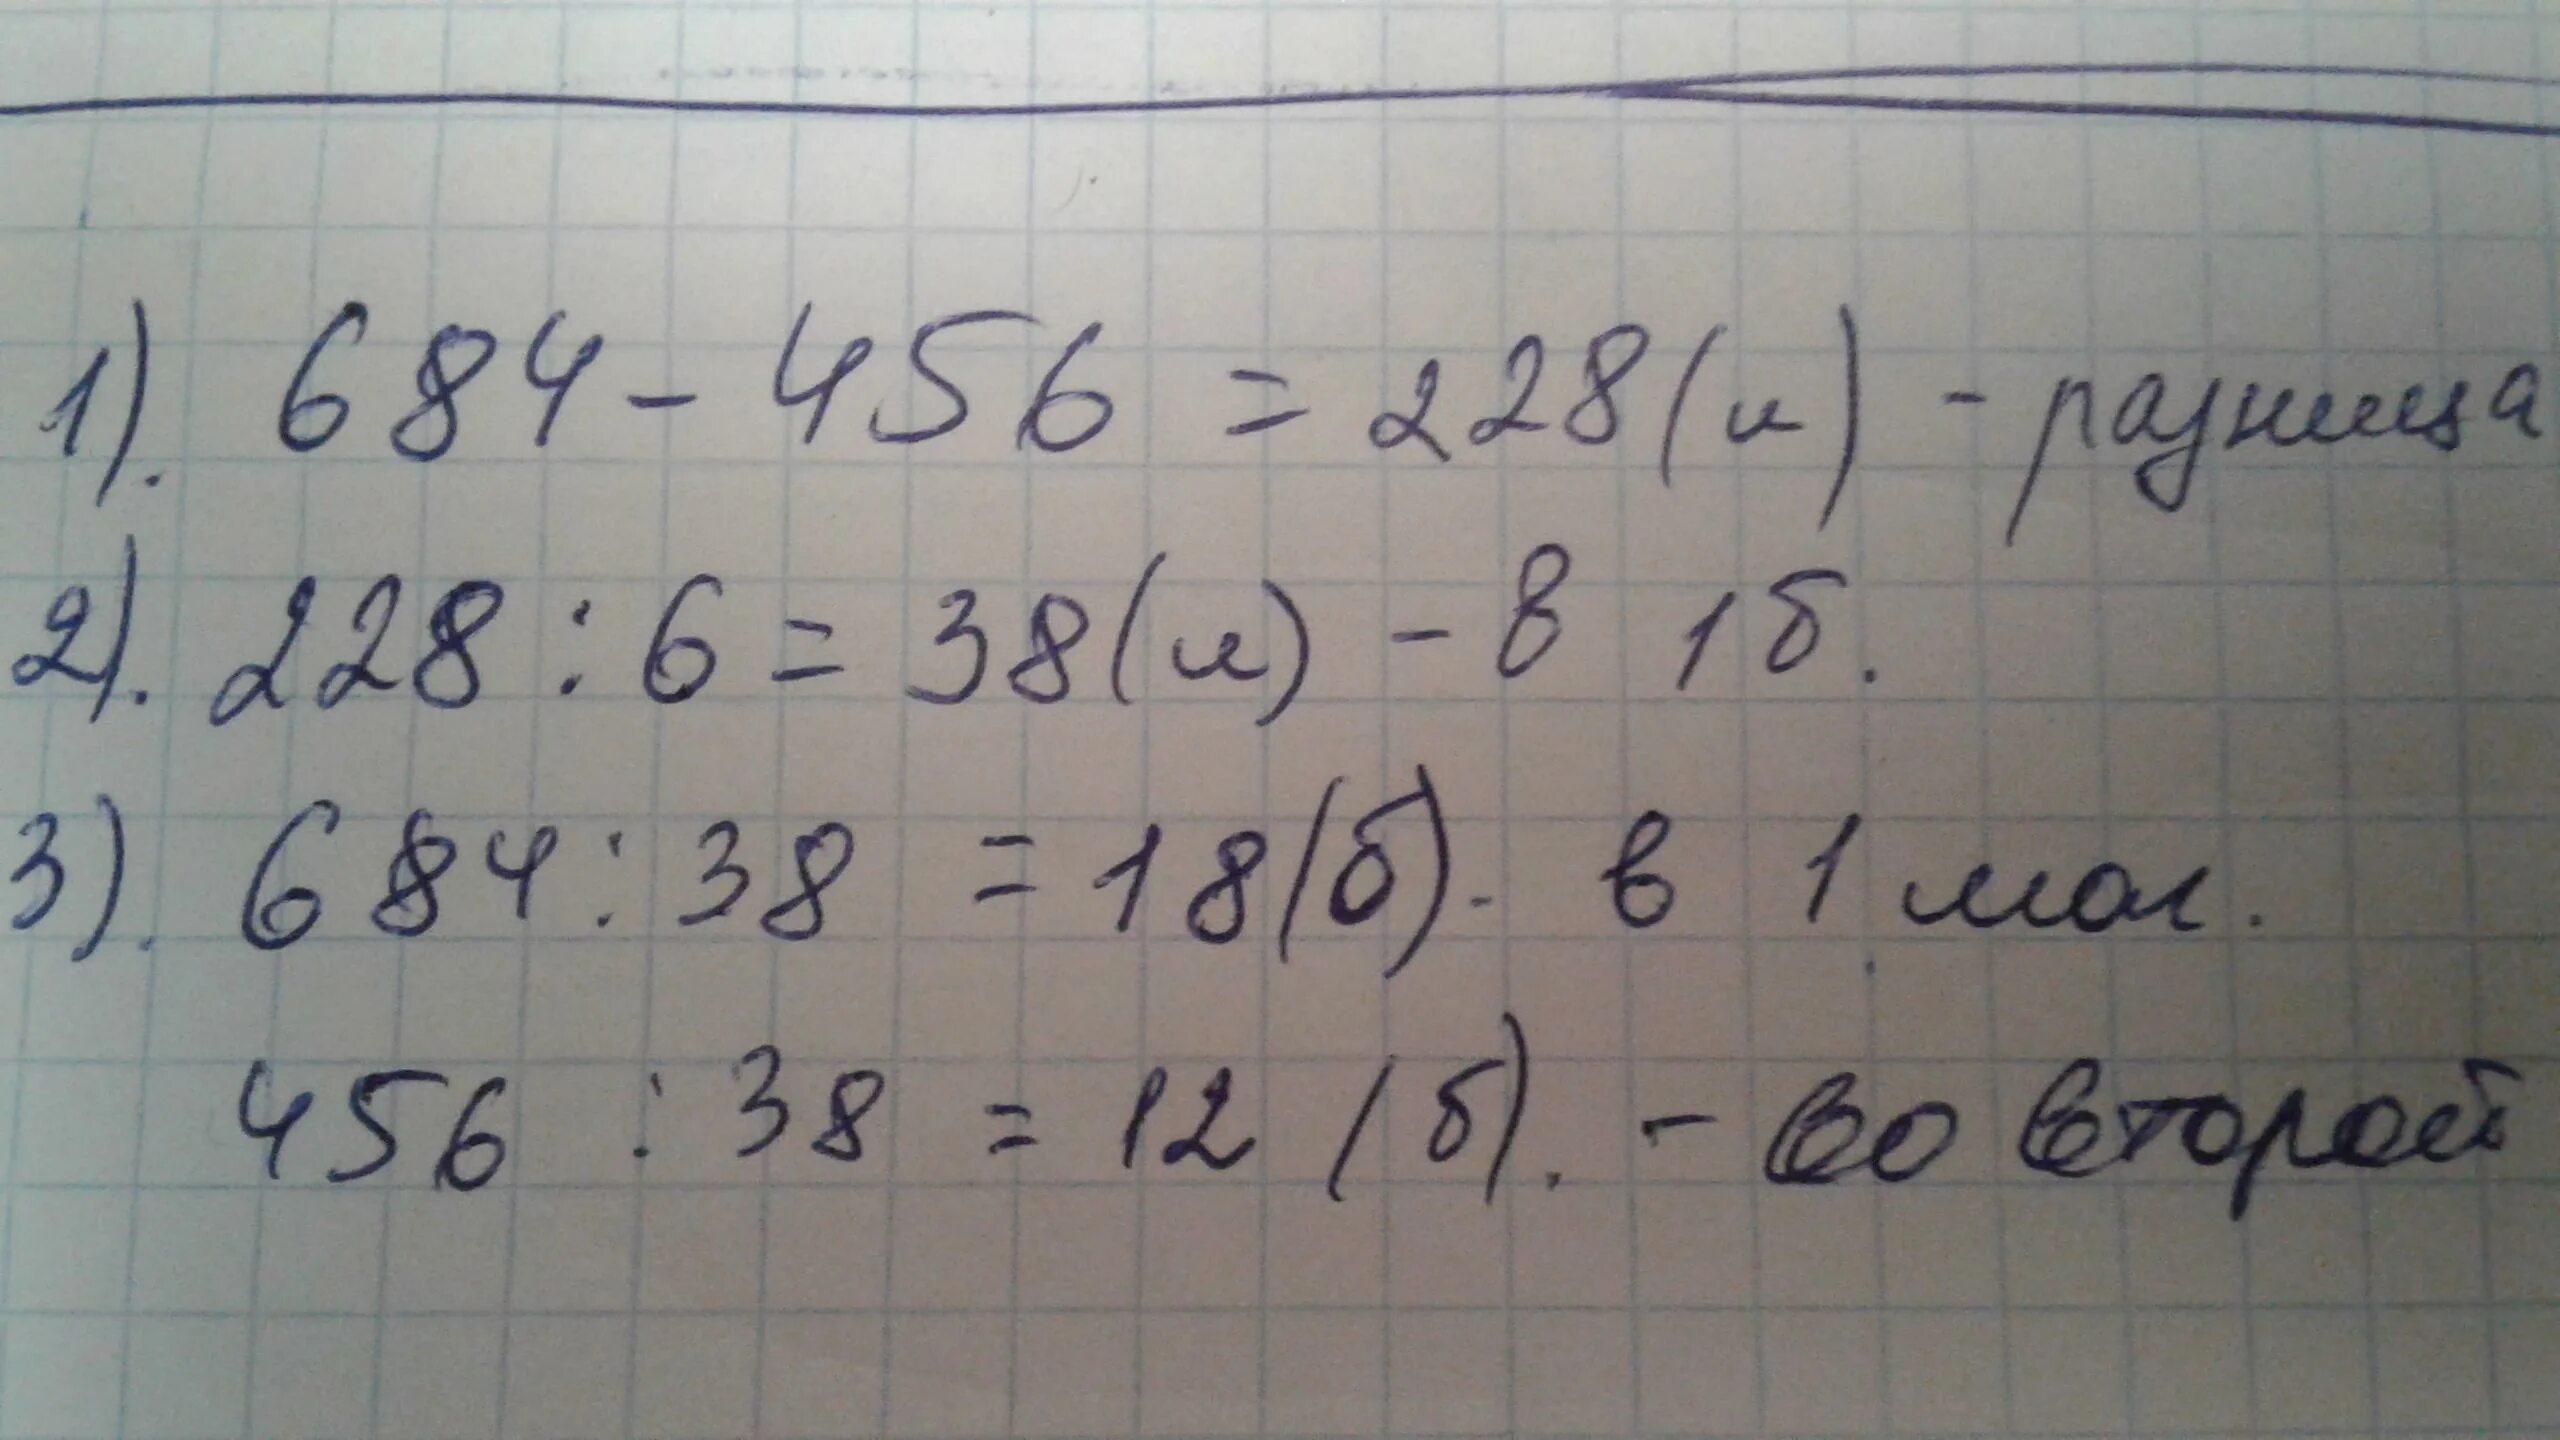 1). 684 - 456 = 228 (л) - разница
2). 228 : 6 = 38 (л) - в 1б.
3). 684 : 38 = 18 (б). в 1 мол.
456 : 38 = 12 (б). - во второй